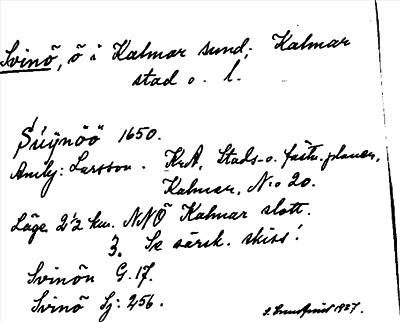 Svinö, ö i Kalmar sund; Kalmar
stad o. l.
Suÿnöö 1650.
Anty: Larsson. KrA, Stads- o. fästn.planer,
Kalmar, No 20.
Läge 2 1/2 km. NNÖ Kalmar slott.
3. Se särsk. skiss!
Svinön G. 17.
Svinö Sj: 256.
1927.